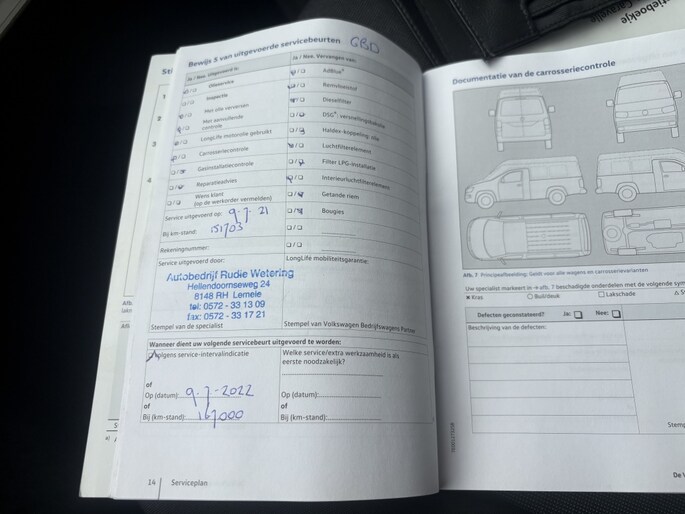 Bewijs 5 van uitgevoerde servicebeurten
GBD
Ja / Nee: Uitgevoerd is:
Olieservice
Inspectie
Met olie verversen
Met aanvullende
controle
LongLife motorolie gebruikt
Carrosseriecontrole
Gasinstallatiecontrole
Reparatieadvies
Wens klant
(op de werkorder vermelden)
Service uitgevoerd op: 9.7.21
Bij km-stand: 151703
Rekeningnummer:
Service uitgevoerd door:
Autobedrijf Rudie Wetering
Hellendoornseweg 24
8148 RH Lemele
tel: 0572 - 33 13 09
fax: 0572 - 33 17 21
Stempel van de specialist
Ja / Nee: Vervangen van:
AdBlue®
Remvloeistof
Dieselfilter
DSG®: versnellingsbakolie
Haldex-koppeling: olie
Luchtfilterelement
Filter LPG-installatie
Interieurluchtfilterelement
Getande riem
Bougies
LongLife mobiliteitsgarantie:
Stempel van Volkswagen Bedrijfswagens Partner
Wanneer dient uw volgende servicebeurt uitgevoerd te worden:
Volgens service-intervalindicatie
of
Op (datum): 9.7-2022
of
Bij (km-stand): 167000
Welke service/extra werkzaamheid is als
eerste noodzakelijk?
Op (datum):
of
Bij (km-stand):
14 Serviceplan
Documentatie van de carrosseriecontrole
Afb. 7 Principeafbeelding: Geldt voor alle wagens en carrosserievarianten
Uw specialist markeert in → afb. 7 beschadigde onderdelen met de volgende sym
Kras
Buil/deuk
Lakschade
Defecten geconstateerd? Ja: Nee:
Beschrijving van de defecten:
Stemp
De V
tieboekje
Caravelle